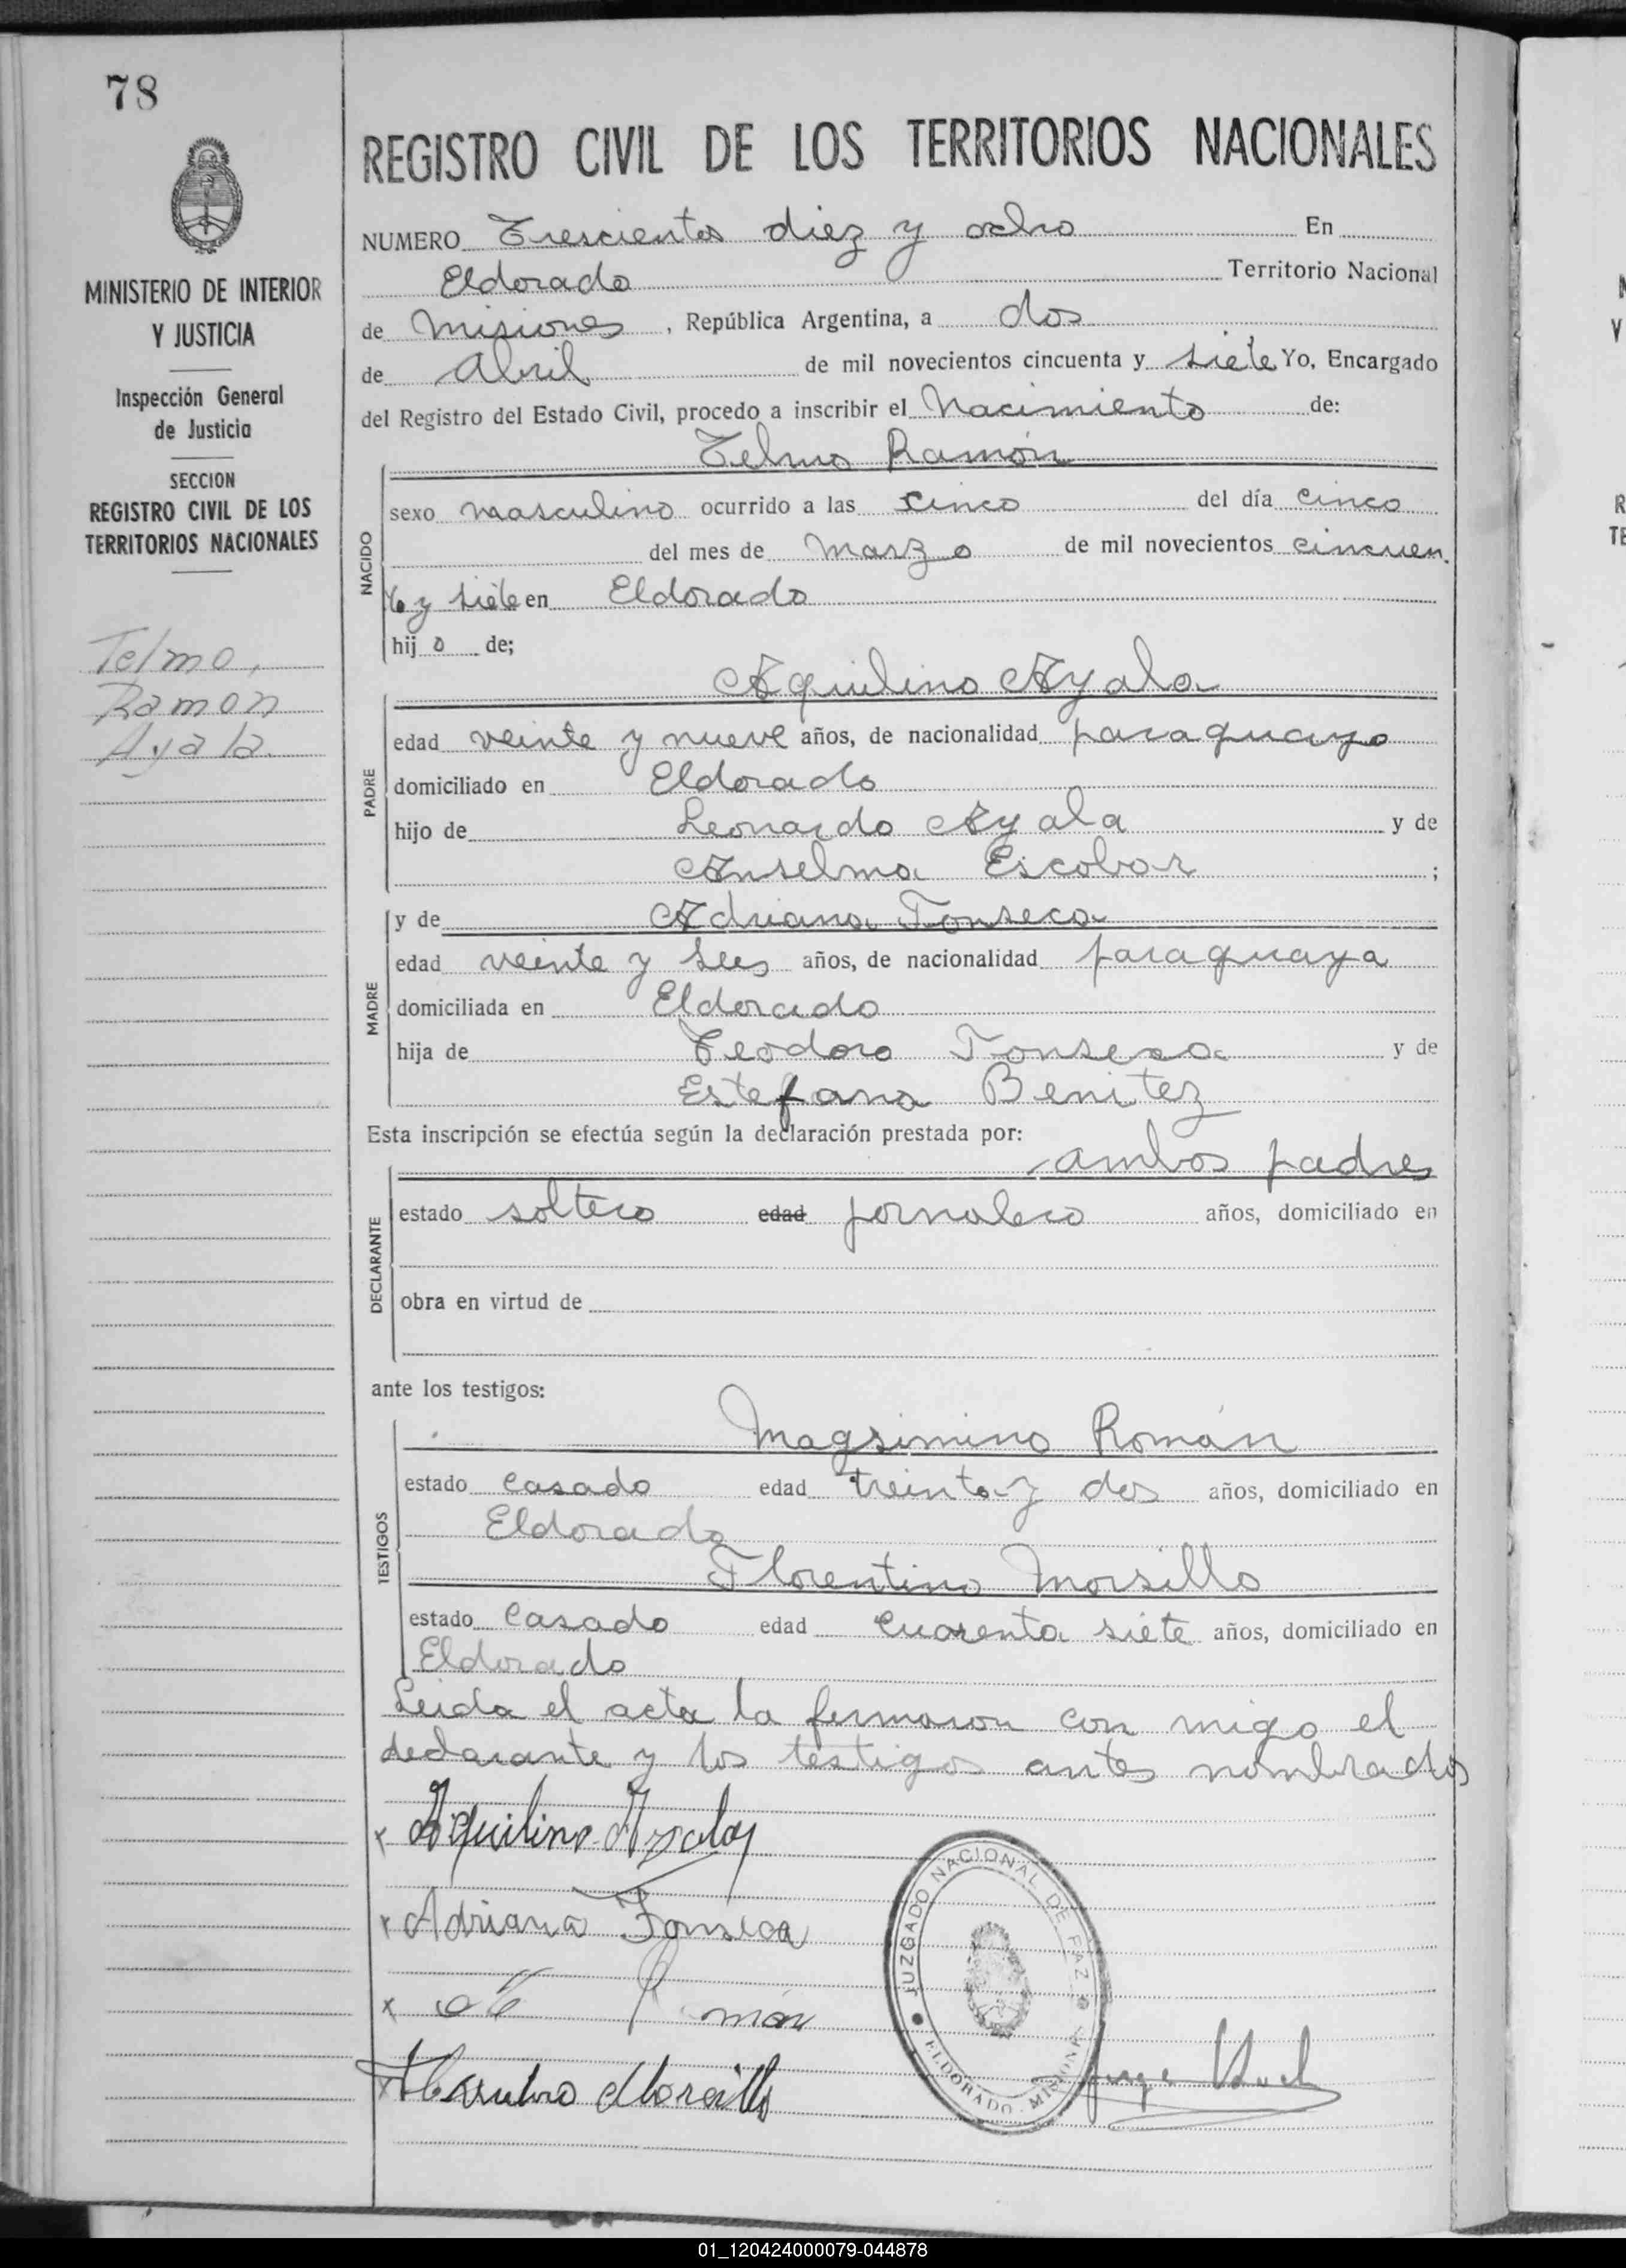 78
MINISTERIO DE INTERIOR
Y JUSTICIA
Inspección General
de Justicia
SECCION
REGISTRO CIVIL DE LOS
TERRITORIOS NACIONALES
Telmo,
Ramon
Ayala.
REGISTRO CIVIL DE LOS TERRITORIOS NACIONALES
NUMERO Trescientos diez y ocho En
Eldorado Territorio Nacional
de Misiones, República Argentina, a dos
de Abril de mil novecientos cincuenta y siete Yo, Encargado
del Registro del Estado Civil, procedo a inscribir el Nacimiento de:
Telmo Ramón
NACIDO
sexo masculino ocurrido a las cinco del día cinco
del mes de Marzo de mil novecientos cincuen
ta y siete en Eldorado
hij o de;
Aquilino Ayala
PADRE
edad veinte y nueve años, de nacionalidad paraguayo
domiciliado en Eldorado
hijo de Leonardo Ayala y de
Anselma Escobar ;
y de Adriana Fonseca
MADRE
edad veinte y seis años, de nacionalidad paraguaya
domiciliada en Eldorado
hija de Teodoro Fonseca y de
Estefana Benitez
Esta inscripción se efectúa según la declaración prestada por:
ambos padres
DECLARANTE
estado soltero edad jornalero años, domiciliado en
obra en virtud de
ante los testigos:
Magsimino Román
TESTIGOS
estado Casado edad treinta y dos años, domiciliado en
Eldorado
Florentino Morsillo
estado Casado edad Cuarenta siete años, domiciliado en
Eldorado
Leida el acta la firmaron con migo el
declarante y los testigos antes nombrados
x Aquilino Ayala
x Adriana Fonseca
x
JUZGADO NACIONAL DE PAZ
ELDORADO - MISIONES
Jorge
01_120424000079-044878